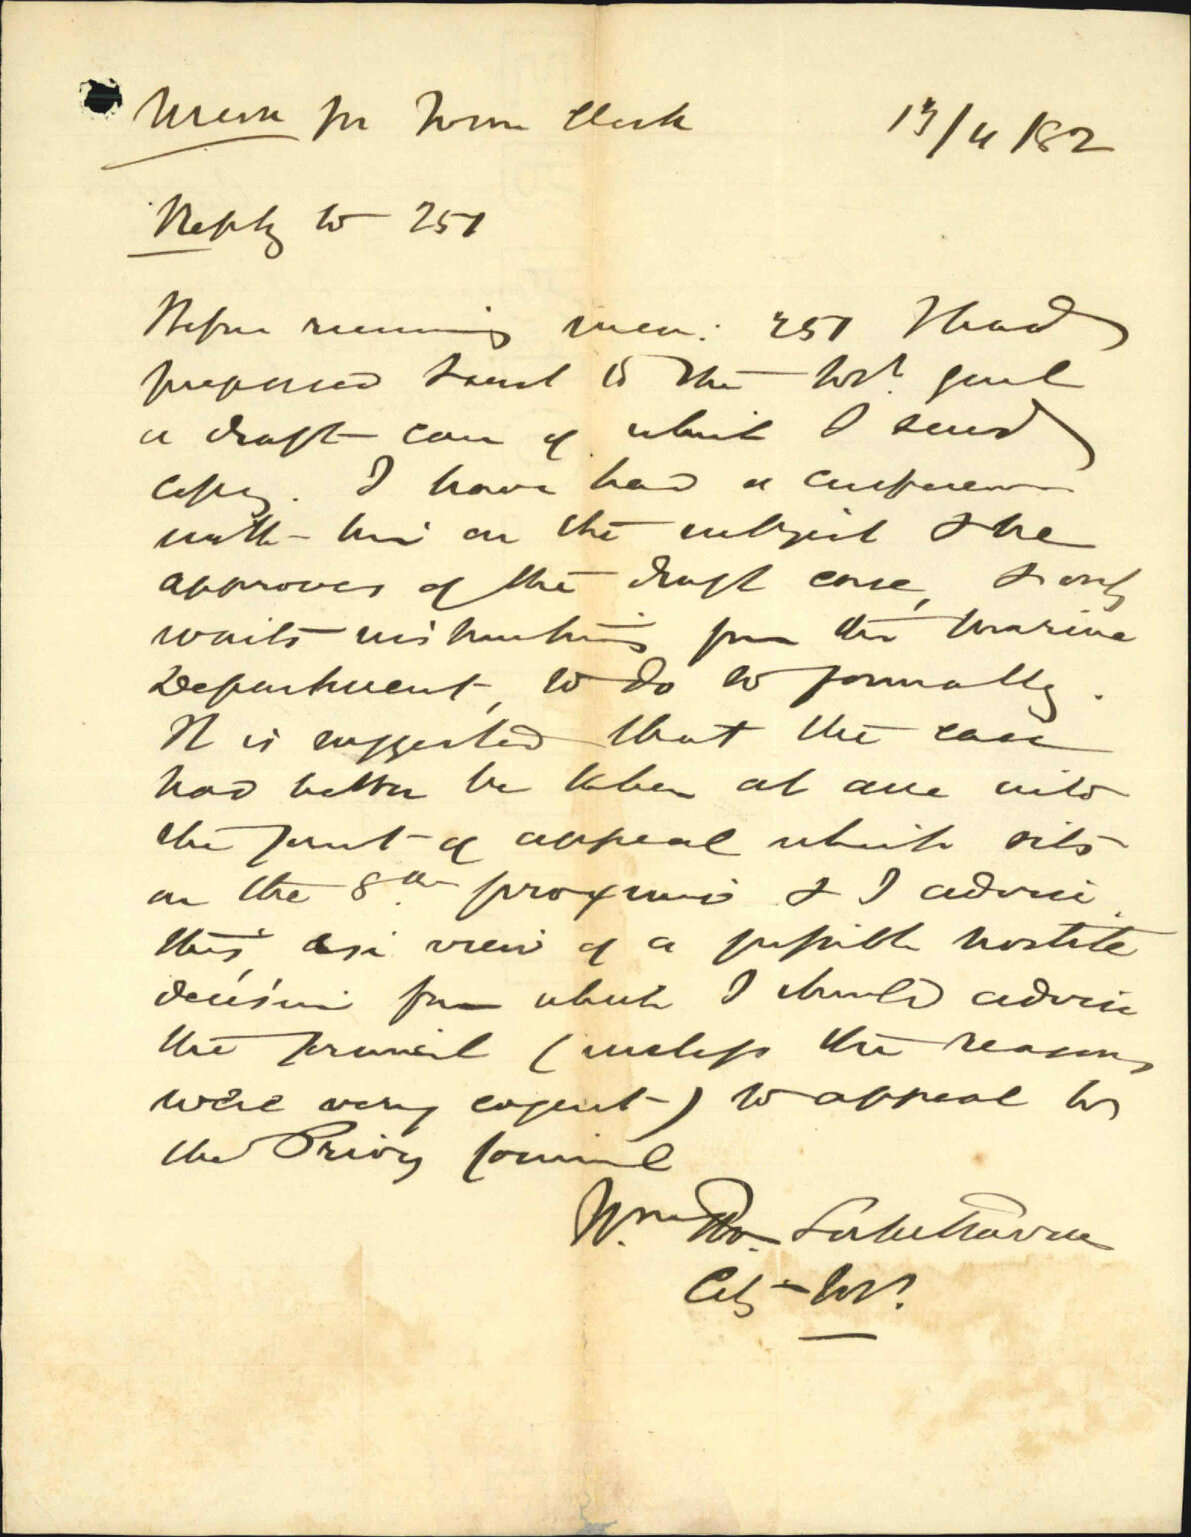 Mem for Town Clerk 17/4/82
Reply to 251
Before receiving mem: 251 I had
prepared & sent to the Solr. Genl
a draft case of which I send
copy. I have had a conference
with him on the subject & he
approves of the draft case, & only
waits instructions from the Marine
Department, to do so formally.
It is suggested that the case
had better be taken at once into
the Court of appeal which sits
on the 8th proximo & I advise
this, in view of a possible hostile
decision from which I should advise
the Council (unless the reasons
were very cogent) to appeal to
the Privy Council
Wm Tho. Locke Travers
City Solr.